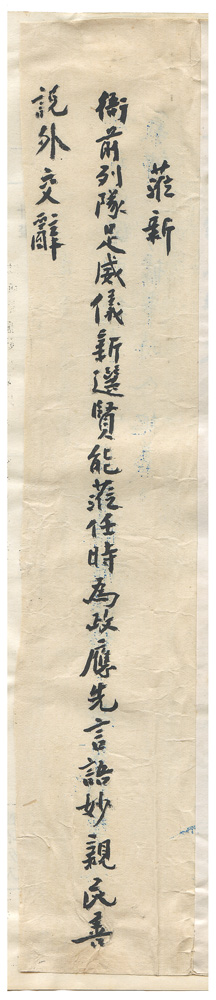 蒞新
衙前列隊足威儀新選賢能蒞任時為政應先言語妙親民善
說外交辭